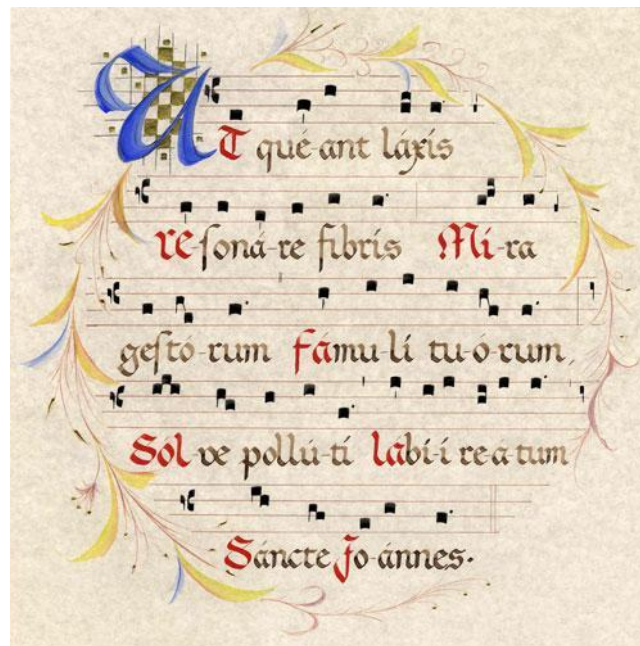 UT qué-ant láxís
re-soná-re fíbrís Mí-ra
gestó-rum fámu-lí tu-ó-rum,
Sol-ve pollú-tí labí-í re-a-tum
Sáncte Jo-ánnes.